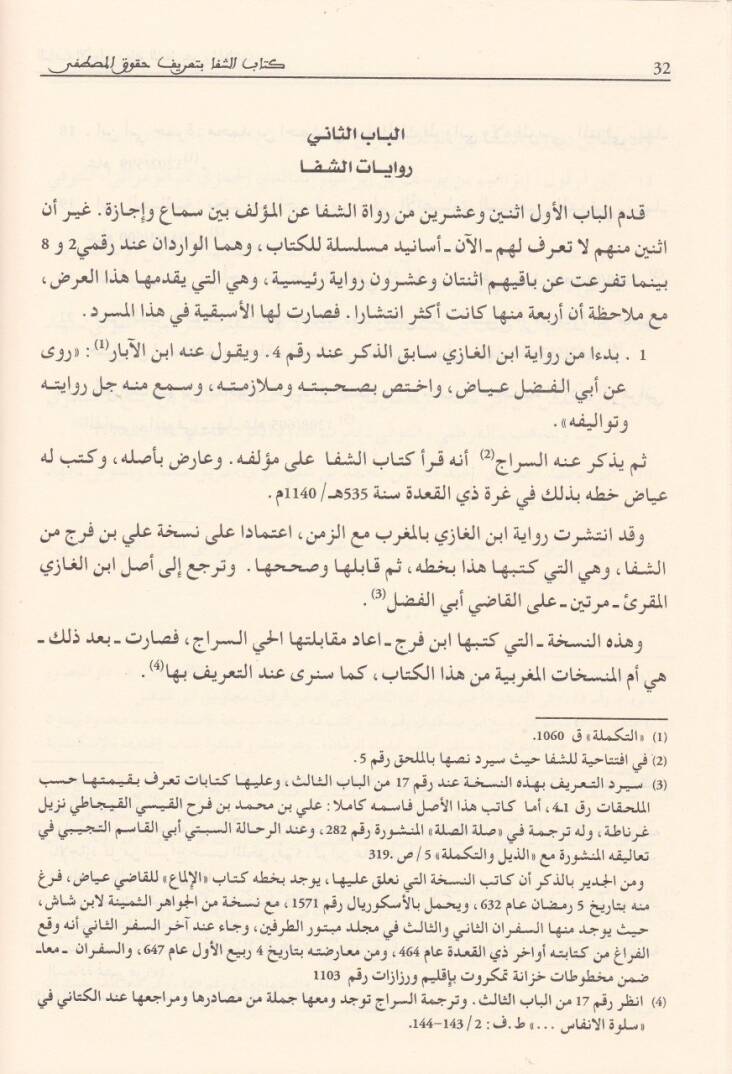 32
كتاب الشفا بتعريف حقوق المصطفى
الباب الثاني
روايات الشفا
قدم الباب الأول اثنين وعشرين من رواة الشفا عن المؤلف بين سماع وإجازة. غير أن
اثنين منهم لا تعرف لهم ـ الآن ـ أسانيد مسلسلة للكتاب، وهما الواردان عند رقمي2 و 8
بينما تفرعت عن باقيهم اثنتان وعشرون رواية رئيسية، وهي التي يقدمها هذا العرض،
مع ملاحظة أن أربعة منها كانت أكثر انتشارا. فصارت لها الأسبقية في هذا المسرد.
1 . بدءا من رواية ابن الغازي سابق الذكر عند رقم 4. ويقول عنه ابن الآبار(1): «روى
عن أبي الفضل عياض، واختص بصحبته وملازمته، وسمع منه جل روايته
وتواليفه».
ثم يذكر عنه السراج(2) أنه قرأ كتاب الشفا على مؤلفه. وعارض بأصله، وكتب له
عياض خطه بذلك في غرة ذي القعدة سنة 535هـ/ 1140م.
وقد انتشرت رواية ابن الغازي بالمغرب مع الزمن، اعتمادا على نسخة علي بن فرج من
الشفا، وهي التي كتبها هذا بخطه، ثم قابلها وصححها. وترجع إلى أصل ابن الغازي
المقرئ ـ مرتين ـ على القاضي أبي الفضل(3).
وهذه النسخة ـ التي كتبها ابن فرج ـ اعاد مقابلتها الحي السراج، فصارت ـ بعد ذلك ـ
هي أم المنسخات المغربية من هذا الكتاب، كما سنرى عند التعريف بها(4).
(1) «التكملة» ق 1060.
(2) في افتتاحية للشفا حيث سيرد نصها بالملحق رقم 5.
(3) سيرد التعريف بهذه النسخة عند رقم 17 من الباب الثالث، وعليها كتابات تعرف بقيمتها حسب
الملحقات رق 1ـ4، أما كاتب هذا الأصل فاسمه كاملا: علي بن محمد بن فرح القيسي القيجاطي نزيل
غرناطة، وله ترجمة في «صلة الصلة» المنشورة رقم 282، وعند الرحالة السبتي أبي القاسم التجيبي في
تعاليقه المنشورة مع «الذيل والتكملة» 5/ ص .319
ومن الجدير بالذكر أن كاتب النسخة التي نعلق عليها، يوجد بخطه كتاب «الإلماع» للقاضي عياض، فرغ
منه بتاريخ 5 رمضان عام 632، ويحمل بالأسكوريال رقم 1571، مع نسخة من الجواهر الثمينة لابن شاش،
حيث يوجد منها السفران الثاني والثالث في مجلد مبتور الطرفين، وجاء عند آخر السفر الثاني أنه وقع
الفراغ من كتابته أواخر ذي القعدة عام 464، ومن معارضته بتاريخ 4 ربيع الأول عام 647، والسفران ـ معاـ
ضمن مخطوطات خزانة تمكروت بإقليم ورزازات رقم 1103
(4) انظر رقم 17 من الباب الثالث. وترجمة السراج توجد ومعها جملة من مصادرها ومراجعها عند الكتاني في
«سلوة الانفاس ...» ط.ف: 2/ 143–144.